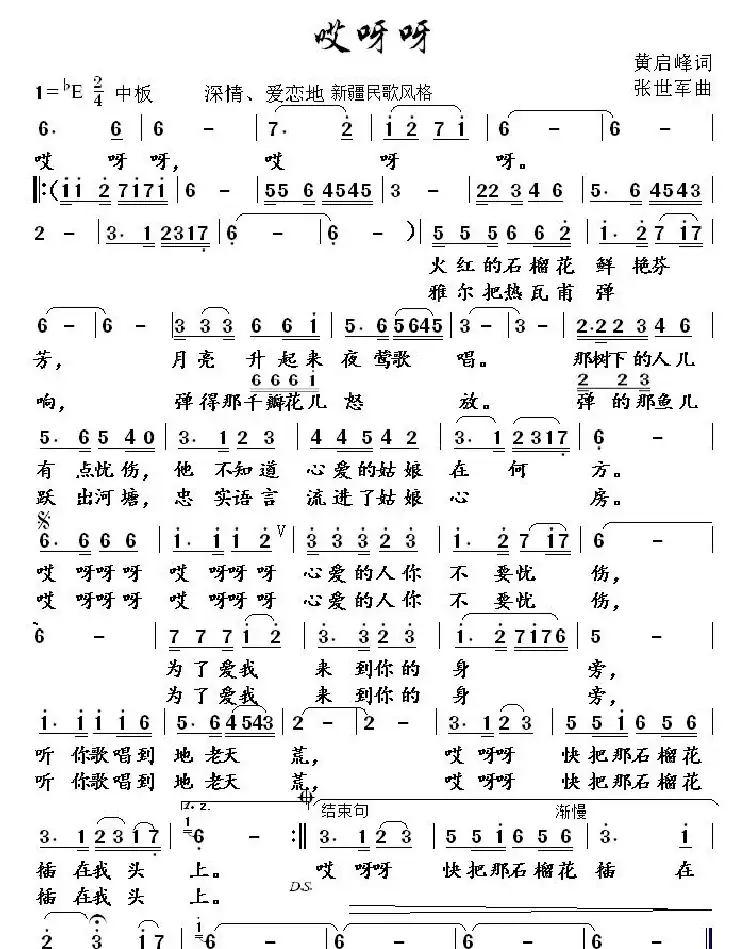 哎呀呀
黄启峰词
1=♭E 2/4 中板 深情、爱恋地 新疆民歌风格 张世军曲
6· 6 | 6 - | 7· 2 | 1 2 7 1 | 6 - | 6 - |
哎 呀 呀， 哎 呀 呀。
‖:(1 1 2 7 1 7 1 | 6 - | 5 5 6 4 5 4 5 | 3 - | 2 2 3 4 6 | 5· 6 4 5 4 3 |
2 - | 3· 1 2 3 1 7 | 6 - | 6 - ) | 5 5 5 6 6 2 | 1· 2 7 1 7 |
火红的石榴花 鲜 艳芬
雅尔把热瓦甫 弹
6 - | 6 - | 3 3 3 6 6 1 | 5· 6 5 6 4 5 | 3 - | 3 - | 2·2 2 3 4 6 |
芳， 月亮 升起来 夜莺歌 唱。 那树下的人儿
6 6 6 1 2 2 2 3
响， 弹得那千瓣花儿 怒 放。 弹 的那鱼儿
5· 6 5 4 0 | 3· 1 2 3 | 4 4 5 4 2 | 3· 1 2 3 1 7 | 6 - |
有 点忧伤， 他 不知道 心爱的姑娘 在 何 方。
跃 出河塘， 忠 实语言 流进了姑娘 心 房。
6· 6 6 6 | 1· 1 1 2 V | 3 3 3 2 3 | 1· 2 7 1 7 | 6 - |
哎 呀呀呀 哎 呀呀呀 心爱的人你 不 要忧 伤，
哎 呀呀呀 哎 呀呀呀 心爱的人你 不 要忧 伤，
6 - | 7 7 7 1 2 | 3· 3 2 3 | 1· 2 7 1 7 6 | 5 - |
为了爱我 来 到你的 身 旁，
为了爱我 来 到你的 身 旁，
1· 1 1 1 6 | 5· 6 4 5 4 3 | 2 - | 2 - | 3· 1 2 3 | 5 5 1 6 5 6 |
听 你歌唱到 地 老天 荒， 哎 呀呀 快把那石榴花
听 你歌唱到 地 老天 荒， 哎 呀呀 快把那石榴花
1. 2. 结束句 渐慢
3· 1 2 3 1 7 | 1 6 - :‖ 3· 1 2 3 | 5 5 1 6 5 6 | 3· 1 |
插 在我 头 上。 哎 呀呀 快把那石榴花 插 在
插 在我 头 上。 D.S.
2 3 1 7 | 1 6 - | 6 - | 6 - | 6 - ‖